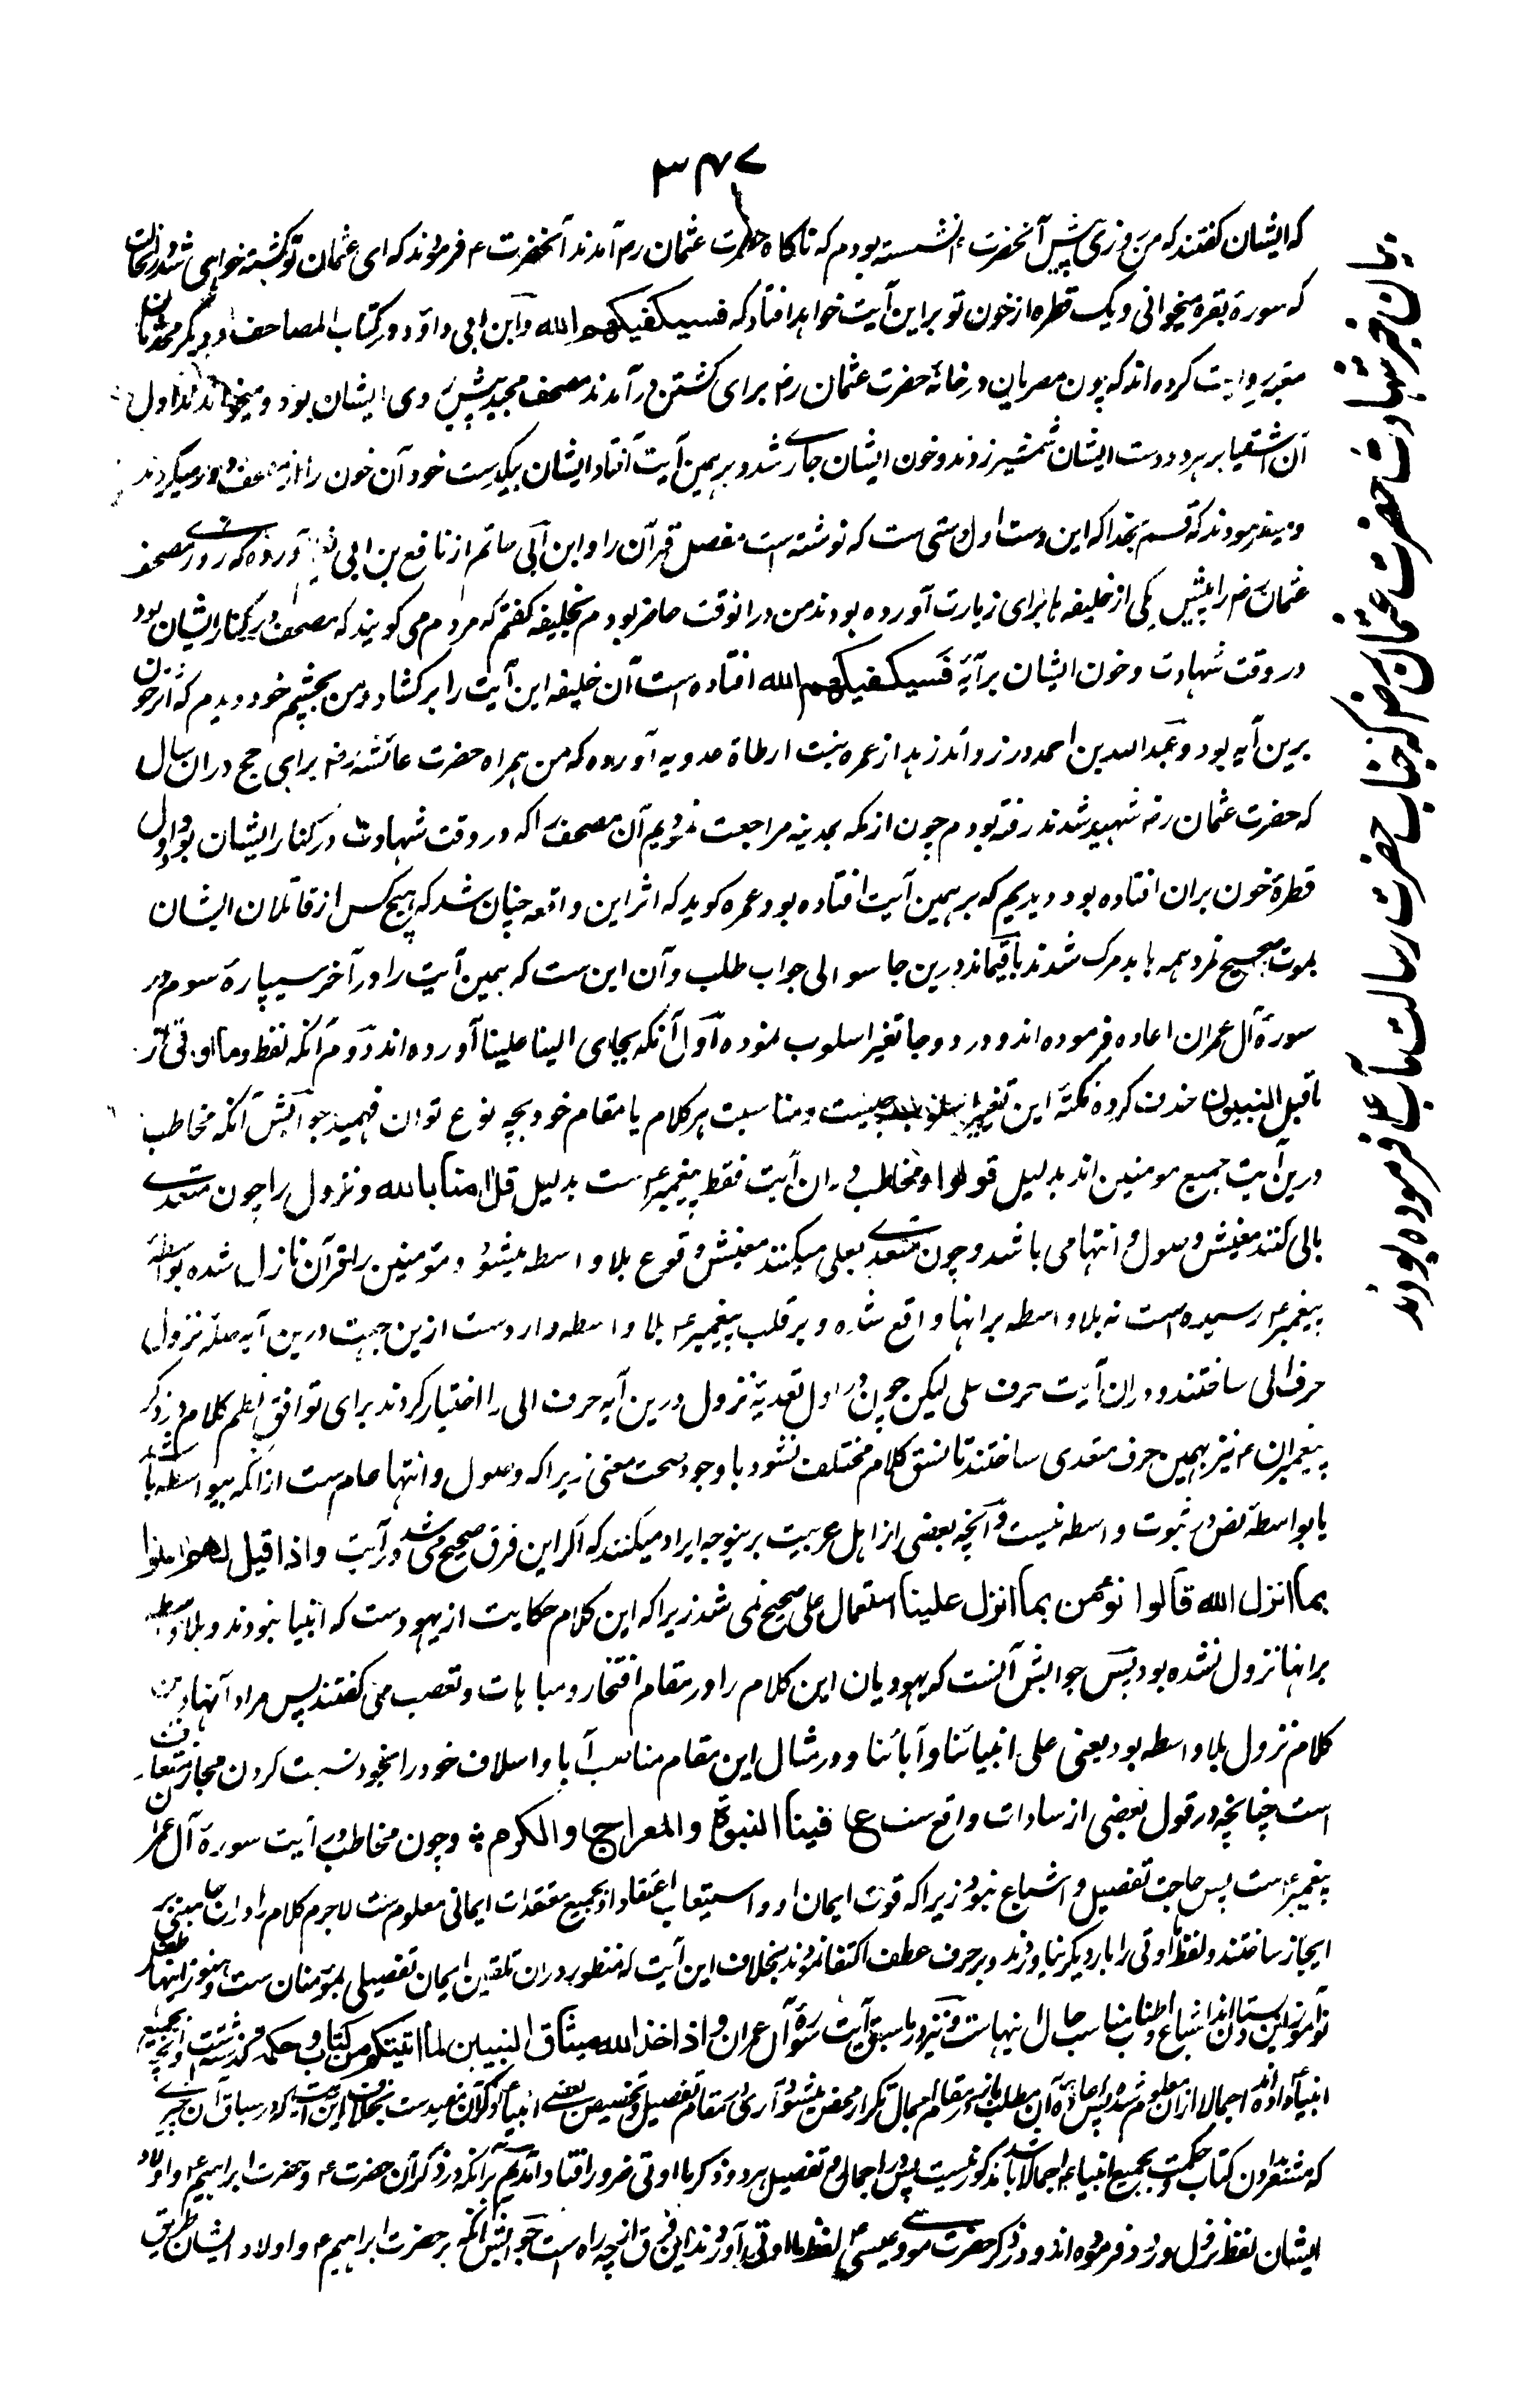 ۳۴۷
که ایشان گفتند که من روزی پیش آنحضرت ؐ نشسته بودم که ناگاه حضرت عثمان رض آمدند آنحضرت ؐ فرمودند که ای عثمان تو کشته خواهی شد در انحال
که سورهٔ بقره میخوانی و یک قطره از خون تو بر این آیت خواهد افتاد که فسیکفیکهم الله و ابن ابی داؤد در کتاب المصاحف و دیگر محدثان
معتبر روایت کرده اند که چون مصریان در خانهٔ حضرت عثمان رض برای کشتن در آمدند مصحف مجید پیش روی ایشان بود و میخواندند اول
آن اشقیا بر هر دو دست ایشان شمشیر زدند و خون ایشان جاری شد و بر همین آیت افتاد ایشان بیکدست خود آن خون را از مصحف دور میکردند
و میفرمودند که قسم بخدا که این دست اول دستی ست که نوشته است مفصل قرآن را و ابن ابی حاتم از نافع بن ابی نعیم آورده که روزی مصحف
عثمان رض را پیش یکی از خلیفه ها برای زیارت آورده بودند من در انوقت حاضر بودم بخلیفه گفتم که مردم می گویند که مصحف در کنار ایشان بود
در وقت شهادت و خون ایشان بر آیهٔ فسیکفیکهم الله افتاده است آن خلیفه این آیت را برکشاد و من بچشم خود دیدم که اثر خون
برین آیه بود و عبدالله بن احمد در زوائد زهد از عمره بنت ارطاة عدویه آورده که من همراه حضرت عائشه رض برای حج دران سال
که حضرت عثمان رض شهید شدند رفته بودم چون از مکه بمدینه مراجعت نمودیم آن مصحف را که در وقت شهادت در کنار ایشان بود و اول
قطرهٔ خون بران افتاده بود دیدیم که بر همین آیت افتاده بود عمره گوید که اثر این واقعه چنان شد که هیچ کس از قاتلان ایشان
بموت صحیح نمرد همه ها بد مرگ شدند باقیماند درین جا سوالی جواب طلب و آن این ست که همین آیت را در آخر سیپارهٔ سوم در
سورهٔ آل عمران اعاده فرموده اند و در دو جا تغیر اسلوب نموده اول آنکه بجای الینا علینا آورده اند دوم آنکه لفظ وما اوتی را از
ماقبل النبیون حذف کرده نکتهٔ این تغییر اسلوب چیست و مناسبت هر کلام با مقام خود بچه نوع توان فهمید جوابش آنکه مخاطب
درین آیت جمیع مومنین اند بدلیل قولوا و مخاطب در ان آیت فقط پیغمبر ؐ است بدلیل قل امنا بالله و نزول را چون متعدی
بالی کنند معنیش وصول و انتها می باشد و چون متعدی بعلی میکنند معنیش وقوع بلا واسطه میشود و مؤمنین را قرآن نازل شده بواسطهٔ
پیغمبر ؐ رسیده است نه بلا واسطه بر انها واقع شده و بر قلب پیغمبر ؐ بلا واسطه وارد ست ازین جهت درین آیه صلهٔ نزول
حرف الی ساختند و دران آیت حرف علی لیکن چون در اول تعدیهٔ نزول درین آیه حرف الی را اختیار کردند برای توافق نظم کلام در ذکر
پیغمبران ؑ نیز بهمین حرف متعدی ساختند تا نسق کلام مختلف نشود با وجود صحت معنی زیرا که وصول و انتها عام ست از انکه بیواسطه باشد
یا بواسطهٔ نص در ثبوت واسطه نیست و آنچه بعضی از اهل عربیت برینوجه ایراد میکنند که اگر این فرق صحیح می شد در آیت و اذا قیل لهم امنوا
بما انزل الله قالوا نؤمن بما انزل علینا استعمال علی صحیح نمی شد زیرا که این کلام حکایت از یهود ست که انبیا نبودند و بلا واسطه
بر انها نزول نشده بود پس جوابش آنست که یهودیان این کلام را در مقام افتخار و مباهات و تعصب می گفتند پس مراد آنها ازین
کلام نزول بلا واسطه بود یعنی علی انبیائنا و آبائنا و در مثال این مقام مناصب آبا و اسلاف خود را بخود نسبت کردن مجاز متعارف
است چنانچه در قول بعضی از سادات واقع ست ع فینا النبوة والمعراج والکرم ؞ و چون مخاطب در آیت سورهٔ آل عمران
پیغمبر ؐ است پس حاجت تفصیل و اشباع نبود زیرا که قوت ایمان او و استیعاب اعتقاد او بجمیع معتقدات ایمانی معلوم ست لاجرم کلام را دران جا مبنی بر
ایجاز ساختند و لفظ ما اوتی را بار دیگر نیاوردند و بر حرف عطف اکتفا نمودند بخلاف این آیت که منظور دران تلقین ایمان تفصیلی بمؤمنان ست و هنوز اینها طفل
نوآموز این دبستان اند اشباع و اطناب مناسب حال اینهاست و نیز در ماسبق آیت سورهٔ آل عمران و اذ اخذ الله میثاق النبیین لما اتیتکم من کتاب و حکمة گذشته است و آنچه بجمیع
انبیا داده اند اجمالا ازان معلوم شده پس اعادهٔ آن مطلب باز در مقام اجمال تکرار محض میشود آری در مقام تفصیل و تخصیص بعضی انبیا ذکر آن مفید ست بخلاف این آیت که در سباق آن چیزی
که مشعر بدادن کتاب و حکمت بجمیع انبیا ؑ اجمالا باشد مذکور نیست پس در اجمال و تفصیل هر دو ذکر ما اوتی ضرور افتاد آمدیم بر آنکه در ذکر آن حضرت ؐ و حضرت ابراهیم ؑ و اولاد
ایشان لفظ نزول ورود فرموده اند و در ذکر حضرت موسی و عیسی ؑ لفظ ما اوتی آوردند این فرق از چه راه است جوابش آنکه بر حضرت ابراهیم ؑ و اولاد ایشان طریق
بیان خبر شهادت حضرت عثمان رض که جناب حضرت رسالت مآب ؐ فرموده بودند